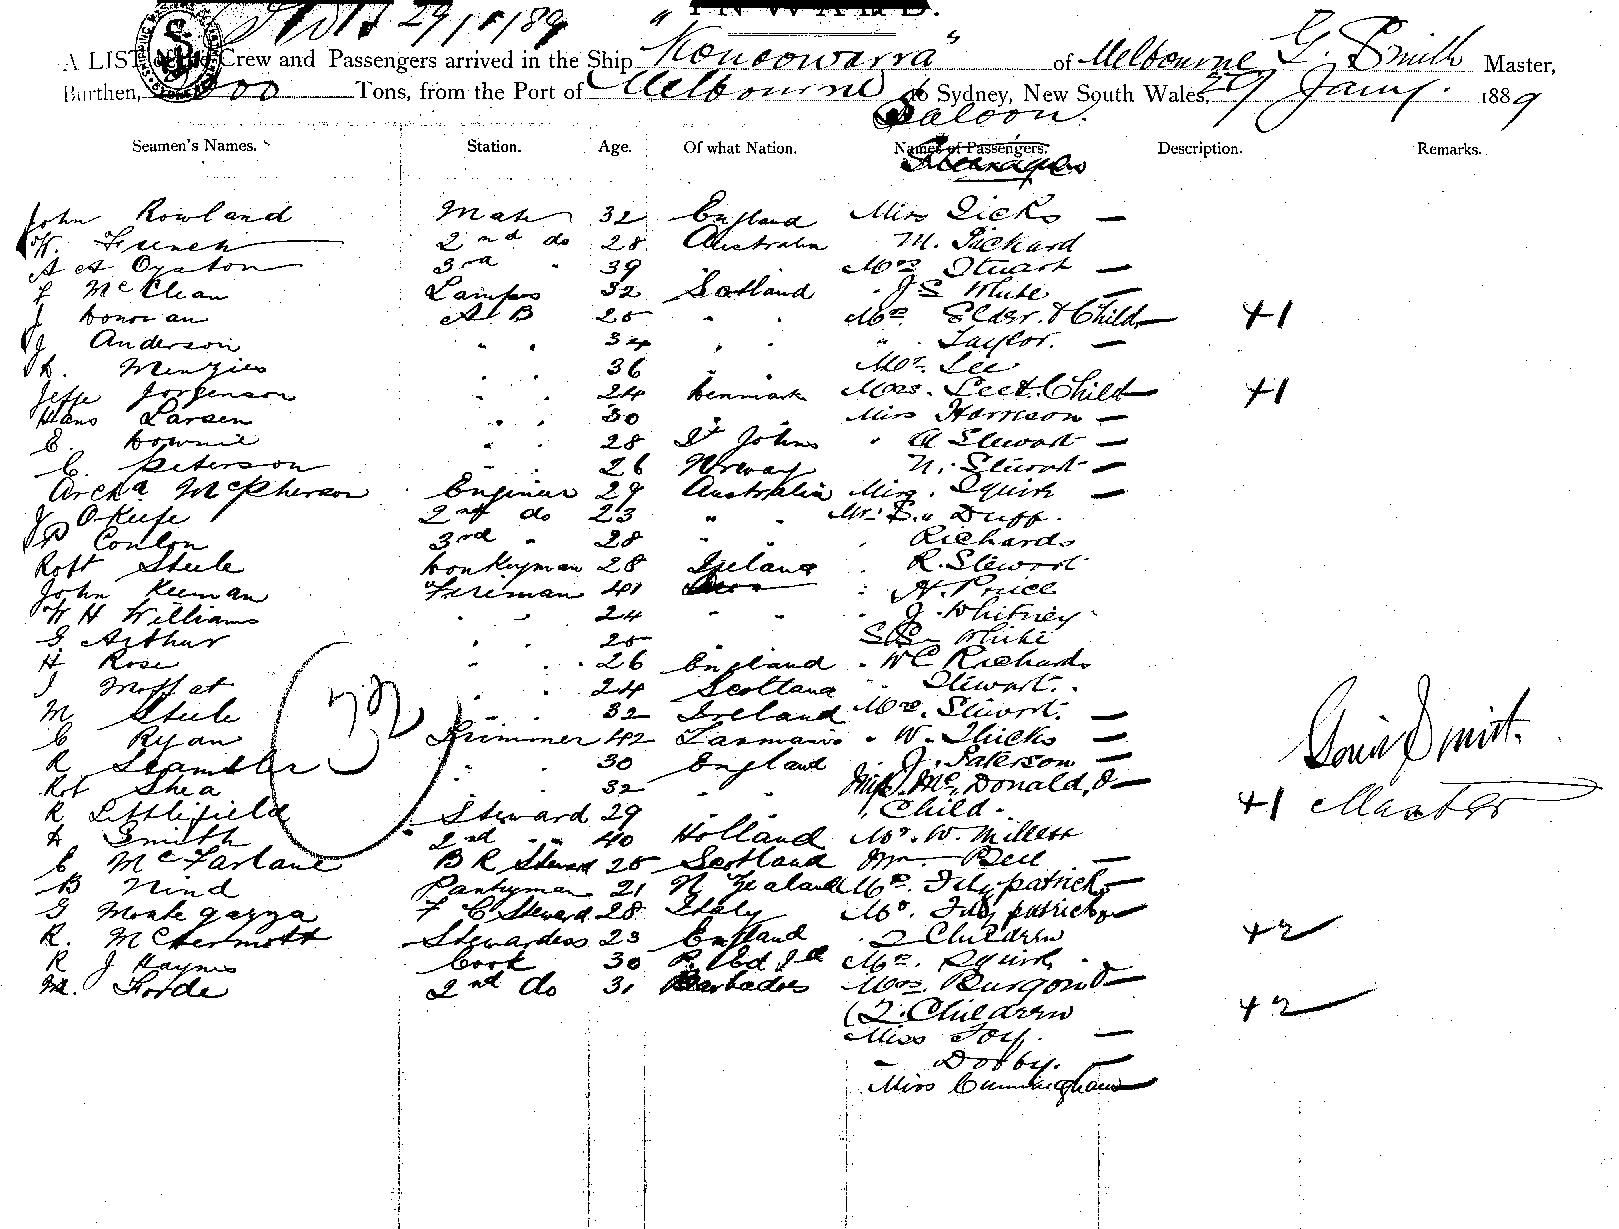 INWARDS.
29/1/89
A LIST of the Crew and Passengers arrived in the Ship "Konoowarra" of Melbourne G. Smith Master,
Burthen, Tons, from the Port of Melbourne to Sydney, New South Wales, 29 Jany. 1889
Saloon.
Seamen's Names. Station. Age. Of what Nation. Names of Passengers. Description. Remarks.
John Rowland Mate 32 England Miss Hicks —
W. French 2nd do 28 Australia M. Pickard
A A 3rd " 39 Mrs Stuart —
J McClean Lamps 32 Scotland " J S White —
J Donovan A B 25 " " Mrs Elder & Child — +1
J Anderson " " 34 " " " Taylor. —
D. Menzies " " 36 " " Mr. Lee
Jeppe Jorgenson " " 24 Denmark Mrs. Lee & Child — +1
Hans Larsen " " 30 " " Miss Harrison —
E. Downie " " 28 St Johns " A Stewart —
C. Peterson " " 26 Norway N. Stewart —
Archd McPherson Engineer 29 Australia Miss. Squirk —
J O'Keefe 2nd do 23 " " Mr. Duff.
P Conlon 3rd " 28 " " Richards
Robt Steele Donkeyman 28 Ireland " R. Stewart
John Keenan Fireman 41 " H. Price
W H Williams " " 24 " " " J. Whitney
G Arthur " " 25 " White
H Rose " " 26 England " W C Richards
J Moffat " " 24 Scotland " Stewart.
M Steele " " 32 Ireland Mrs. Stewart. —
C Ryan Trimmer 42 Tasmania " W. Thicks —
R Scambler " " 30 England " J. Paterson —
Rot Shea " " 32 " " McDonald, &
R Littlefield Steward 29 " " Child. +1
D Smith 2nd " 40 Holland Mr. W. Millett
C McFarlane B R Steward 25 Scotland Bell —
B Nind Pantryman 21 N Zealand Mr. Fitzpatrick —
G Montegazza F C Steward 28 Italy Mrs. Fitzpatrick &
R. McDermott Stewardess 23 England 2 Children +2
R J Haynes Cook 30 Mr. Squirk
M. Forde 2nd do 31 Barbados Mrs. Burgoin &
(2. Children +2
Miss Foy. —
" Dobby. —
Miss Cunningham —
32
Smith.
Master